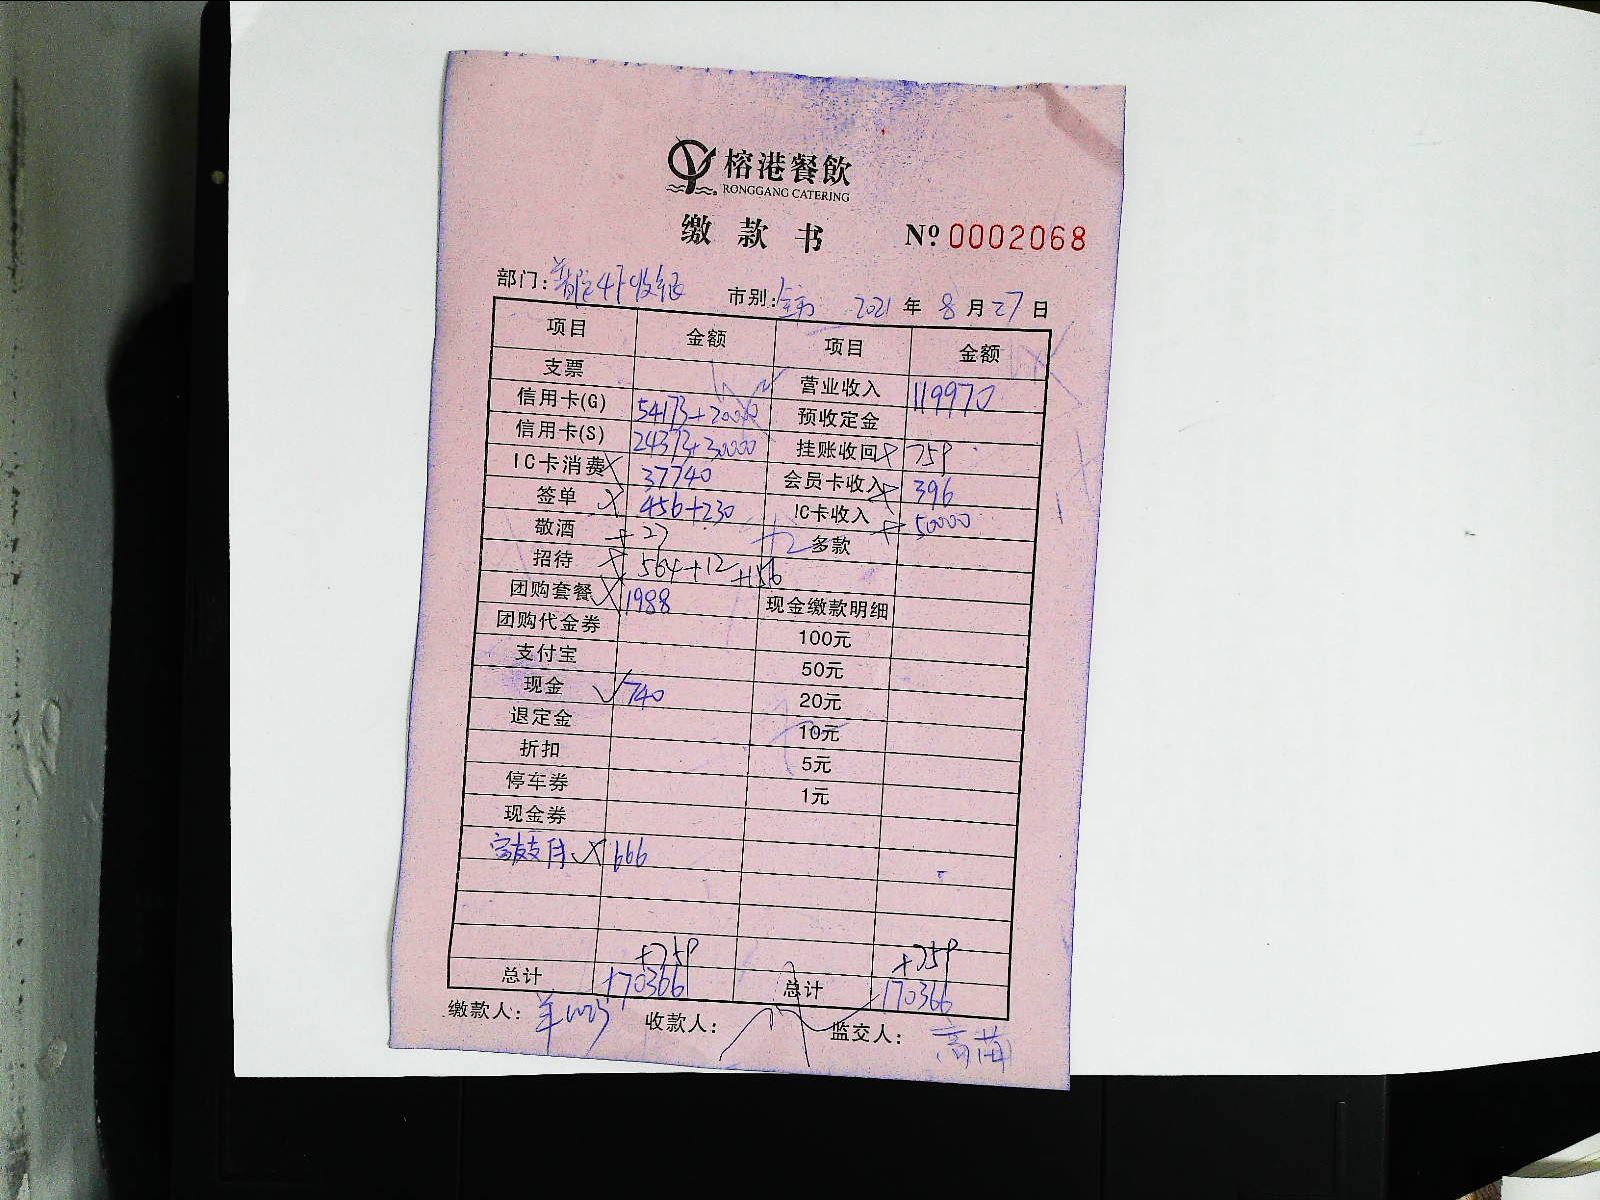 榕港餐飲
RONGGANG CATERING
缴款书 Nº 0002068
部门: 市别: 2021 年 8 月 27 日
项目 金额 项目 金额
支票 营业收入 119970
信用卡(G) 54173+20000 预收定金
信用卡(S) 24373+30000 挂账收回 759
IC卡消费 37740 会员卡收入 396
签单 456+230 IC卡收入 50000
敬酒 27 多款
招待 564+12+156
团购套餐 1988 现金缴款明细
团购代金券 100元
支付宝 50元
现金 740 20元
退定金 10元
折扣 5元
停车券 1元
现金券
666
+759 +759
总计 170366 总计 170366
缴款人: 收款人: 监交人: